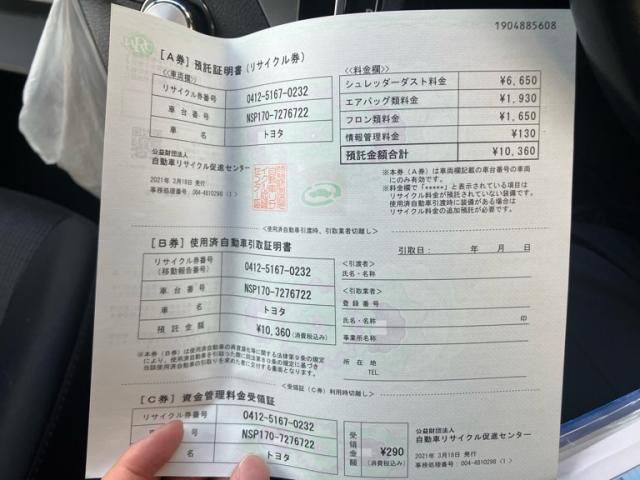 1904885608
［A券］預託証明書（リサイクル券）
＜車両欄＞
リサイクル券番号 0412-5167-0232
車台番号 NSP170-7276722
車名 トヨタ
公益財団法人
自動車リサイクル促進センター
2021年 3月18日 発行
事務処理番号：004-4810298（I）
＜料金欄＞
シュレッダーダスト料金 ¥6,650
エアバッグ類料金 ¥1,930
フロン類料金 ¥1,650
情報管理料金 ¥130
預託金額合計 ¥10,360
※本券（A券）は車両欄記載の車台番号の車両
にのみ有効です。
※料金欄で「*****」と表示されている項目は
リサイクル料金が預託されていない装備です。
使用済自動車引渡時に装備がある場合は
リサイクル料金の追加預託が必要です。
＜使用済自動車引渡時、引取業者切離し＞
［B券］使用済自動車引取証明書
リサイクル券番号
（移動報告番号） 0412-5167-0232
車台番号 NSP170-7276722
車名 トヨタ
預託金額 ¥10,360（消費税込み）
※本券（B券）は使用済自動車の再資源化等に関する法律第9条の規定
により、使用済自動車を引取った際に同法第80条の規定に基づき
当該使用済自動車の引取りを求めた者に交付する書面となります。
引取日： 年 月 日
＜引渡者＞
氏名・名称
＜引取業者＞
登録番号
氏名・名称 印
事業所名称
所在地
TEL
＜受領証（C券）利用時切離し＞
［C券］資金管理料金受領証
リサイクル券番号 0412-5167-0232
NSP170-7276722
名 トヨタ
受領金額 ¥290
（消費税込み）
公益財団法人
自動車リサイクル促進センター
2021年 3月18日 発行
事務処理番号：004-4810298（I）